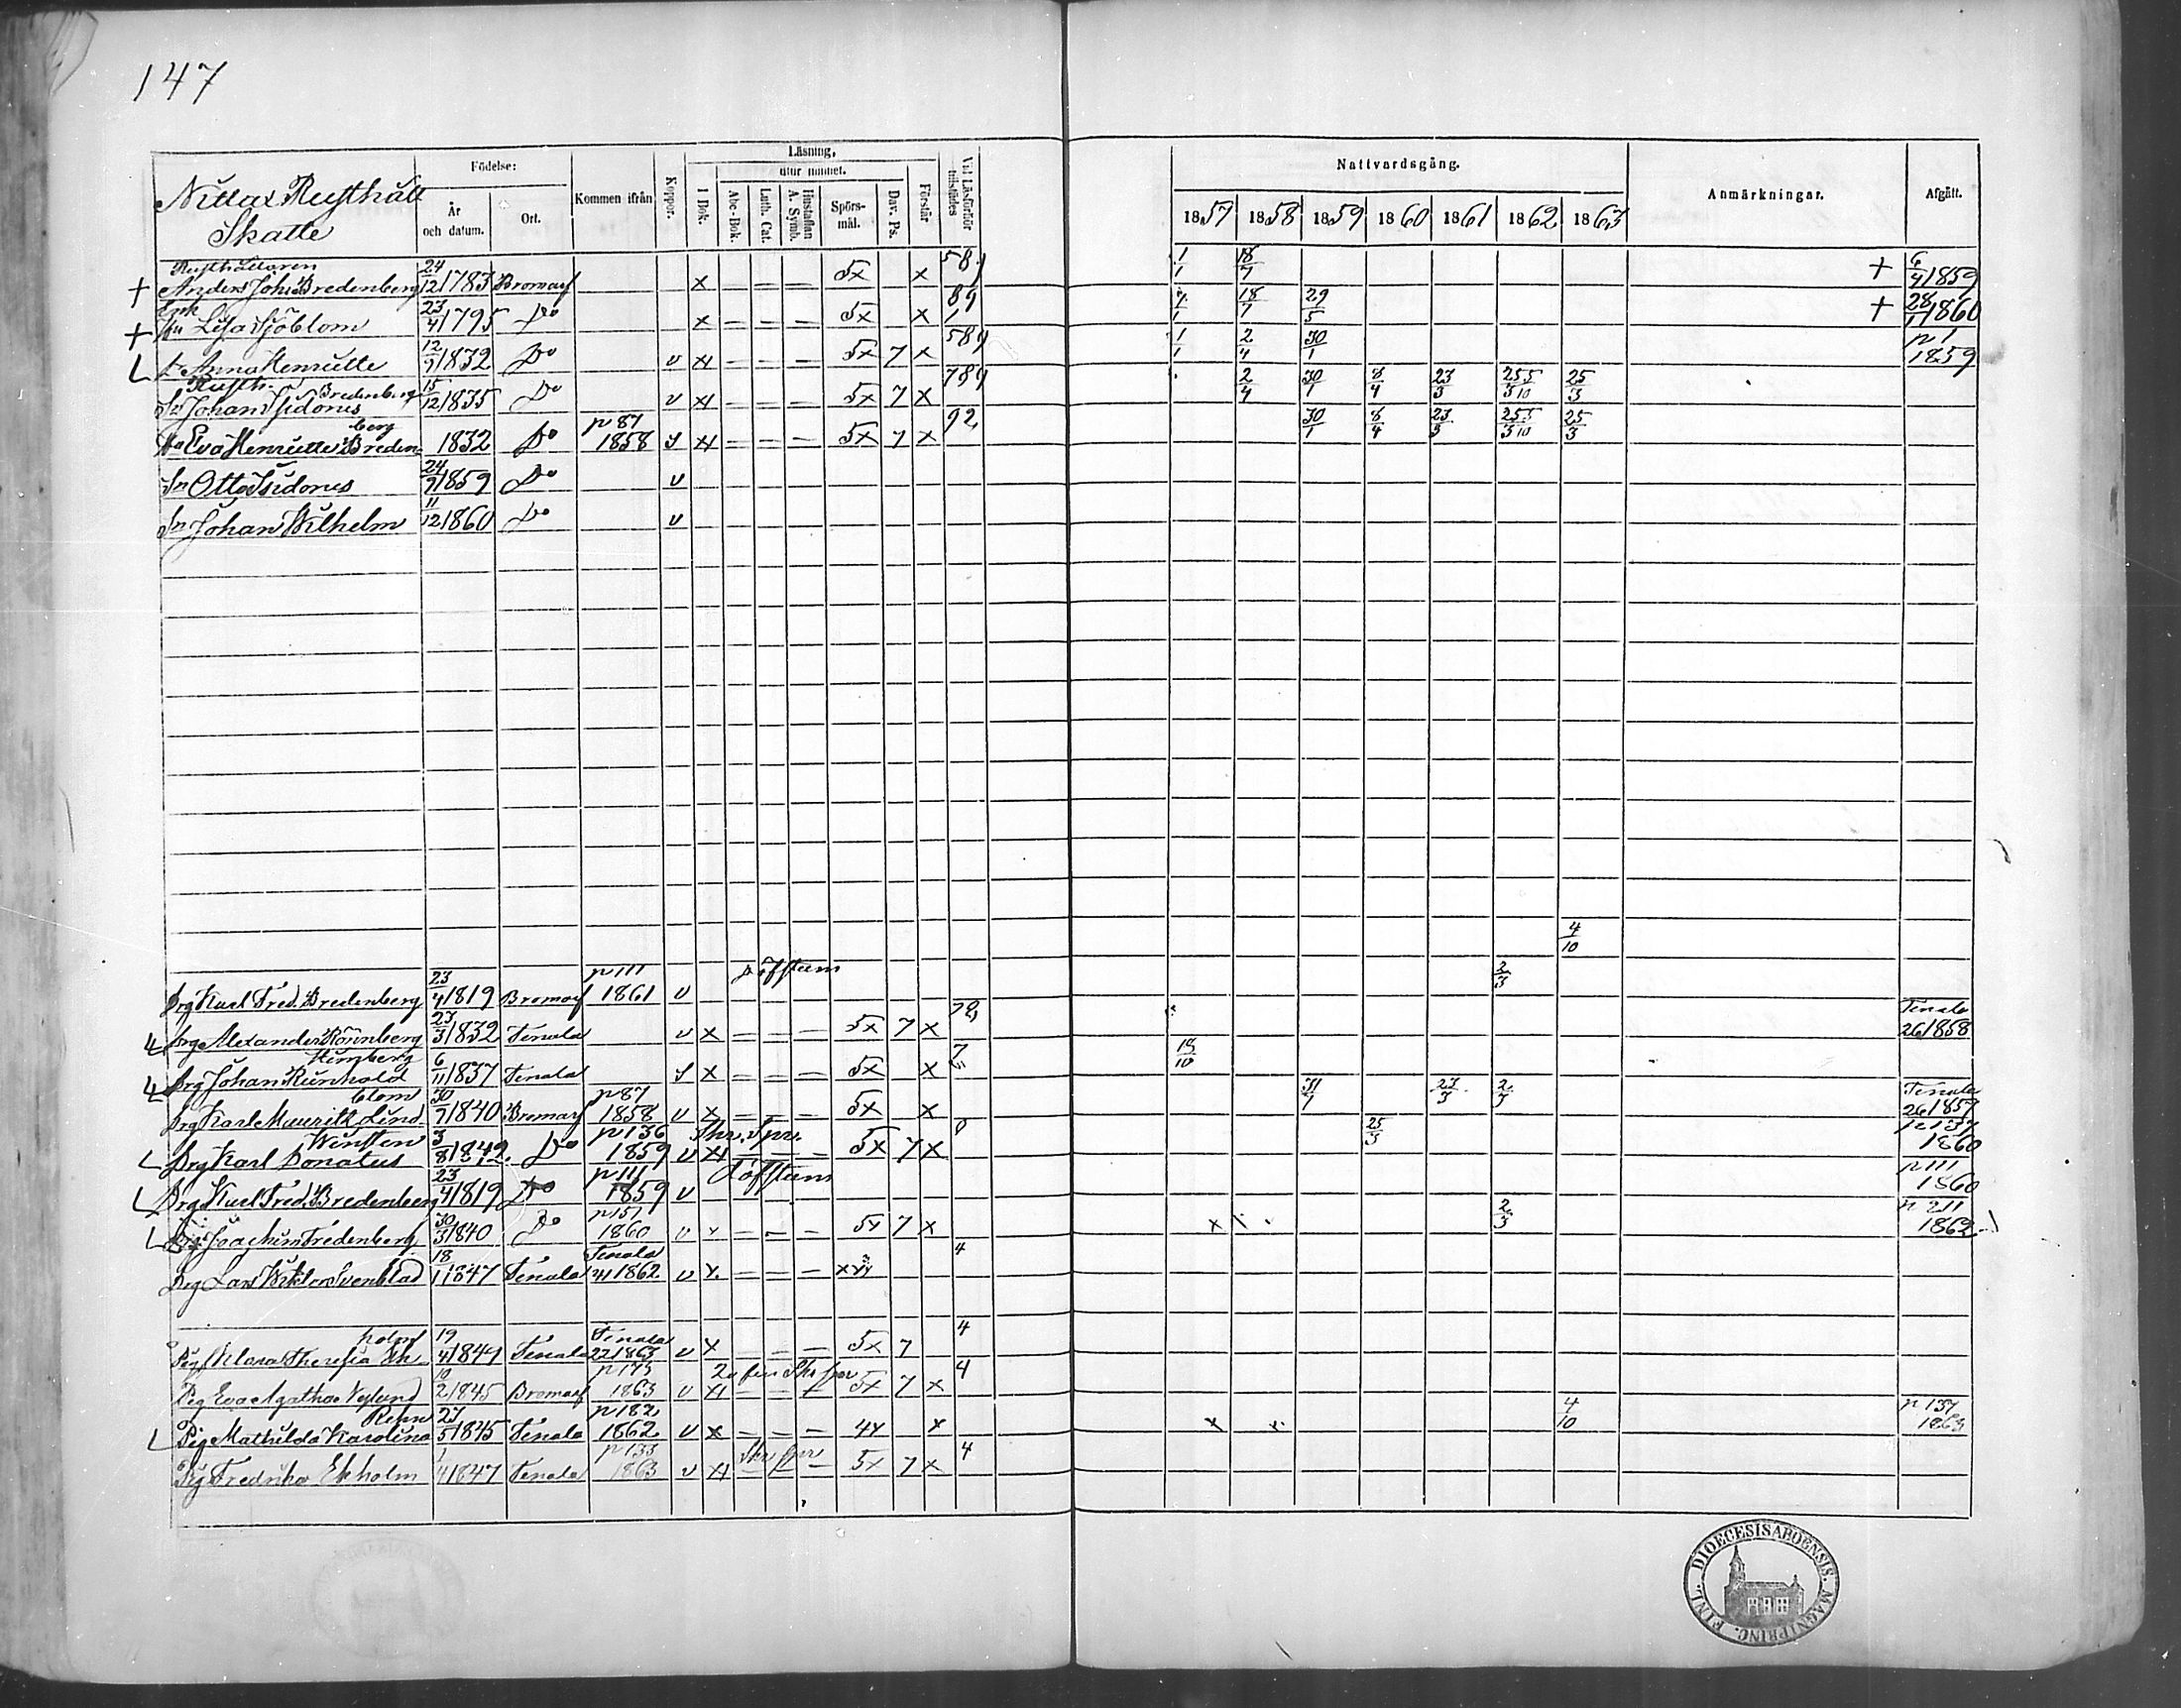 147
Nitlax Rusthåll
Skatte
Födelse:
År och datum.
Ort.
Kommen ifrån
Koppor.
Läsning,
I Bok.
utur minnet.
Abc-Bok.
Luth. Cat.
Hustaflan A. Symb.
Spörs-mål.
Dav. Ps.
Förstår
Vid Läsförhör tillstädes
Nattvardsgång.
1857 1858 1859 1860 1861 1862 1863
Anmärkningar.
Afgått.
Rusthållaren
+ Anders Joh: Bredenberg 24/12 1783 Bromarf x — — — 5x x 589 1/1 18/7 + 6/4 1859
Enk
+ Hu Lisa Sjöblom 23/4 1795 Do x — — — 5x x 89 18/7 29/5 + 28/1 1860
L Dr Anna Henriette 12/9 1832 Do v — — — 5x 7 x 589 1/1 2/4 30/1 p 1 1859
Rusth. Bredenberg
Sn Johan Isidorus 15/12 1835 Do v — — — 5x 7 x 789 2/4 30/1 8/4 23/3 25/3 5/10 25/3
berg
Hu Eva Henriette Breden 1832 Do p 87 1858 — — — 5x 7 x 92 30/1 8/4 23/3 25/3 5/10 25/3
Sn Otto Isidorus 24/9 1859 Do v
Sn Johan Wilhelm 11/12 1860 Do v
4/10
Drg Karl Fred. Bredenberg 23/4 1819 Bromarf p 111 1861 v döfstum 2/3
Drg Alexander Rönnberg 23/3 1832 Tenala v x — — — 5x 7 x 78 Tenala 26 1858
Himberg
Drg Johan Reinhold 6/11 1837 Tenala x — — — 5x x 7 18/10
blom
Drg Karl Mauritz Lind 30/9 1840 Bromarf p 87 1858 v x — — — 5x x 31/1 23/3 2/3 Tenala 26 1857
Winsten
L Drg Karl Donatus 3/8 1842 Do p 136 1859 v Skr. Spr. 5x 7 x 8 25/3 p 137 1860
L Drg Karl Fred. Bredenberg 23/4 1819 Do p 111 1859 v döfstum p 111 1860
L Drg Joachim Fredenberg 30/3 1840 Do p 151 1860 v x — — — 5x 7 x x 2/3 p 211 1862
Drg Lars Wiktor Svenblad 18/1 1847 Tenala Tenala 41 1862 v x — — — 4
holm
Pig Klara Theresia Ek 19/4 1841 Tenala Tenala 22 1863 v x — — — 5x 7 4
Pig Eva Agatha Nylund 10/2 1845 Bromarf p 175 1863 v — — — 5x 7 x 4
Renn
L Pig Mathilda Karolina 27/5 1845 Tenala p 182 1862 v x — — — 4x x x x 4/10 p 137 1863
Pig Fredrika Ekholm 1/4 1847 Tenala p 133 1863 v Skr spr 5x 7 x 4
FINL. DIOECESIS ABOENSIS. MAGNI PRINC.